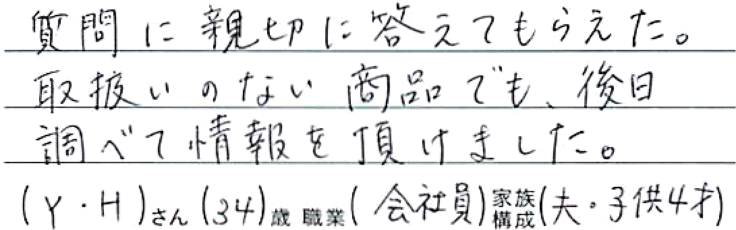 質問に親切に答えてもらえた。
取扱いのない商品でも、後日
調べて情報を頂けました。
(Y・H)さん(34)歳 職業(会社員)家族構成(夫・子供4才)